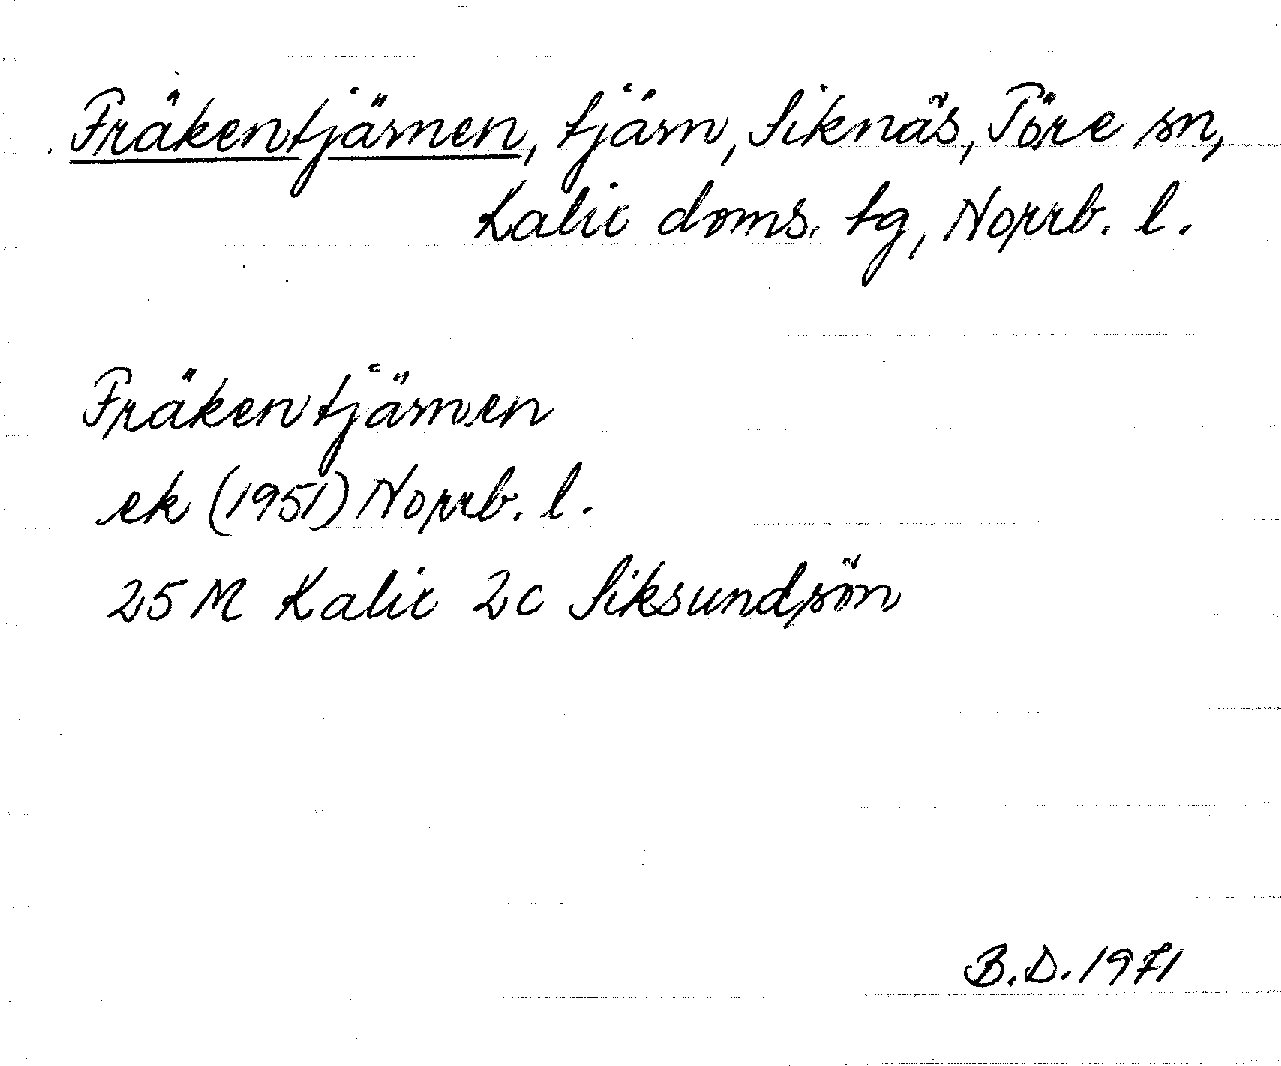 Fräkentjärnen, tjärn, Siknäs, Töre sn,
Kalix doms. tg, Norrb. l.
Fräkentjärnen
ek (1951) Norrb. l.
25 M Kalix 2c Siksundsön
B.D. 1971